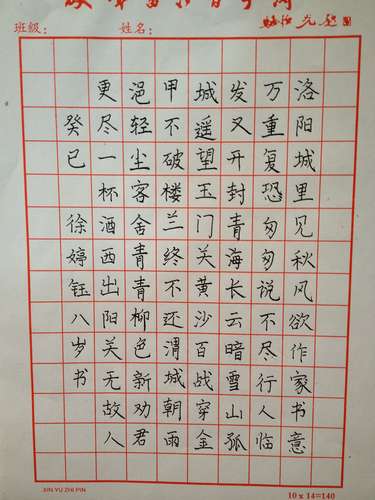 班級： 姓名：
洛阳城里见秋风欲作家书意
万重复恐匆匆说不尽行人临
发又开封青海长云暗雪山孤
城遥望玉门关黄沙百战穿金
甲不破楼兰终不还渭城朝雨
浥轻尘客舍青青柳色新劝君
更尽一杯酒西出阳关无故人
癸巳 徐婷钰八岁书
XIN YU ZHI PIN
10 x 14=140